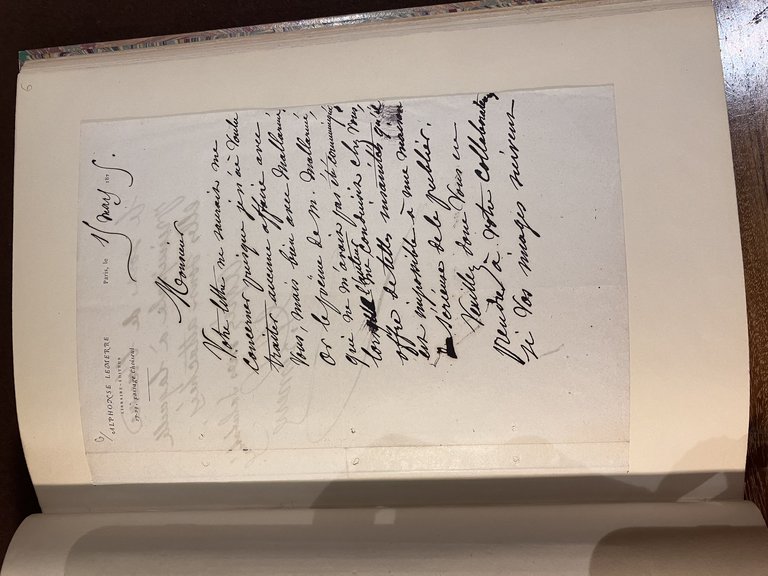 6/
ALPHONSE LEMERRE
LIBRAIRE-ÉDITEUR
27-31, passage Choiseul
Paris, le 15 mars 187 5.
Monsieur
Votre lettre ne saurait me
concerner puisque je n'ai voulu
traiter aucune affaire avec
Vous, mais bien avec Mallarmé,
Or le poème de M. Mallarmé,
qui ne m'avait pas été communiqué
lorsque l'auteur Vous conduisit chez moi,
offre de telles insanités qu'il
est impossible à une maison
sérieuse de le publier.
Veuillez donc Vous en
prendre à votre collaborateur
si vos images suivent
6